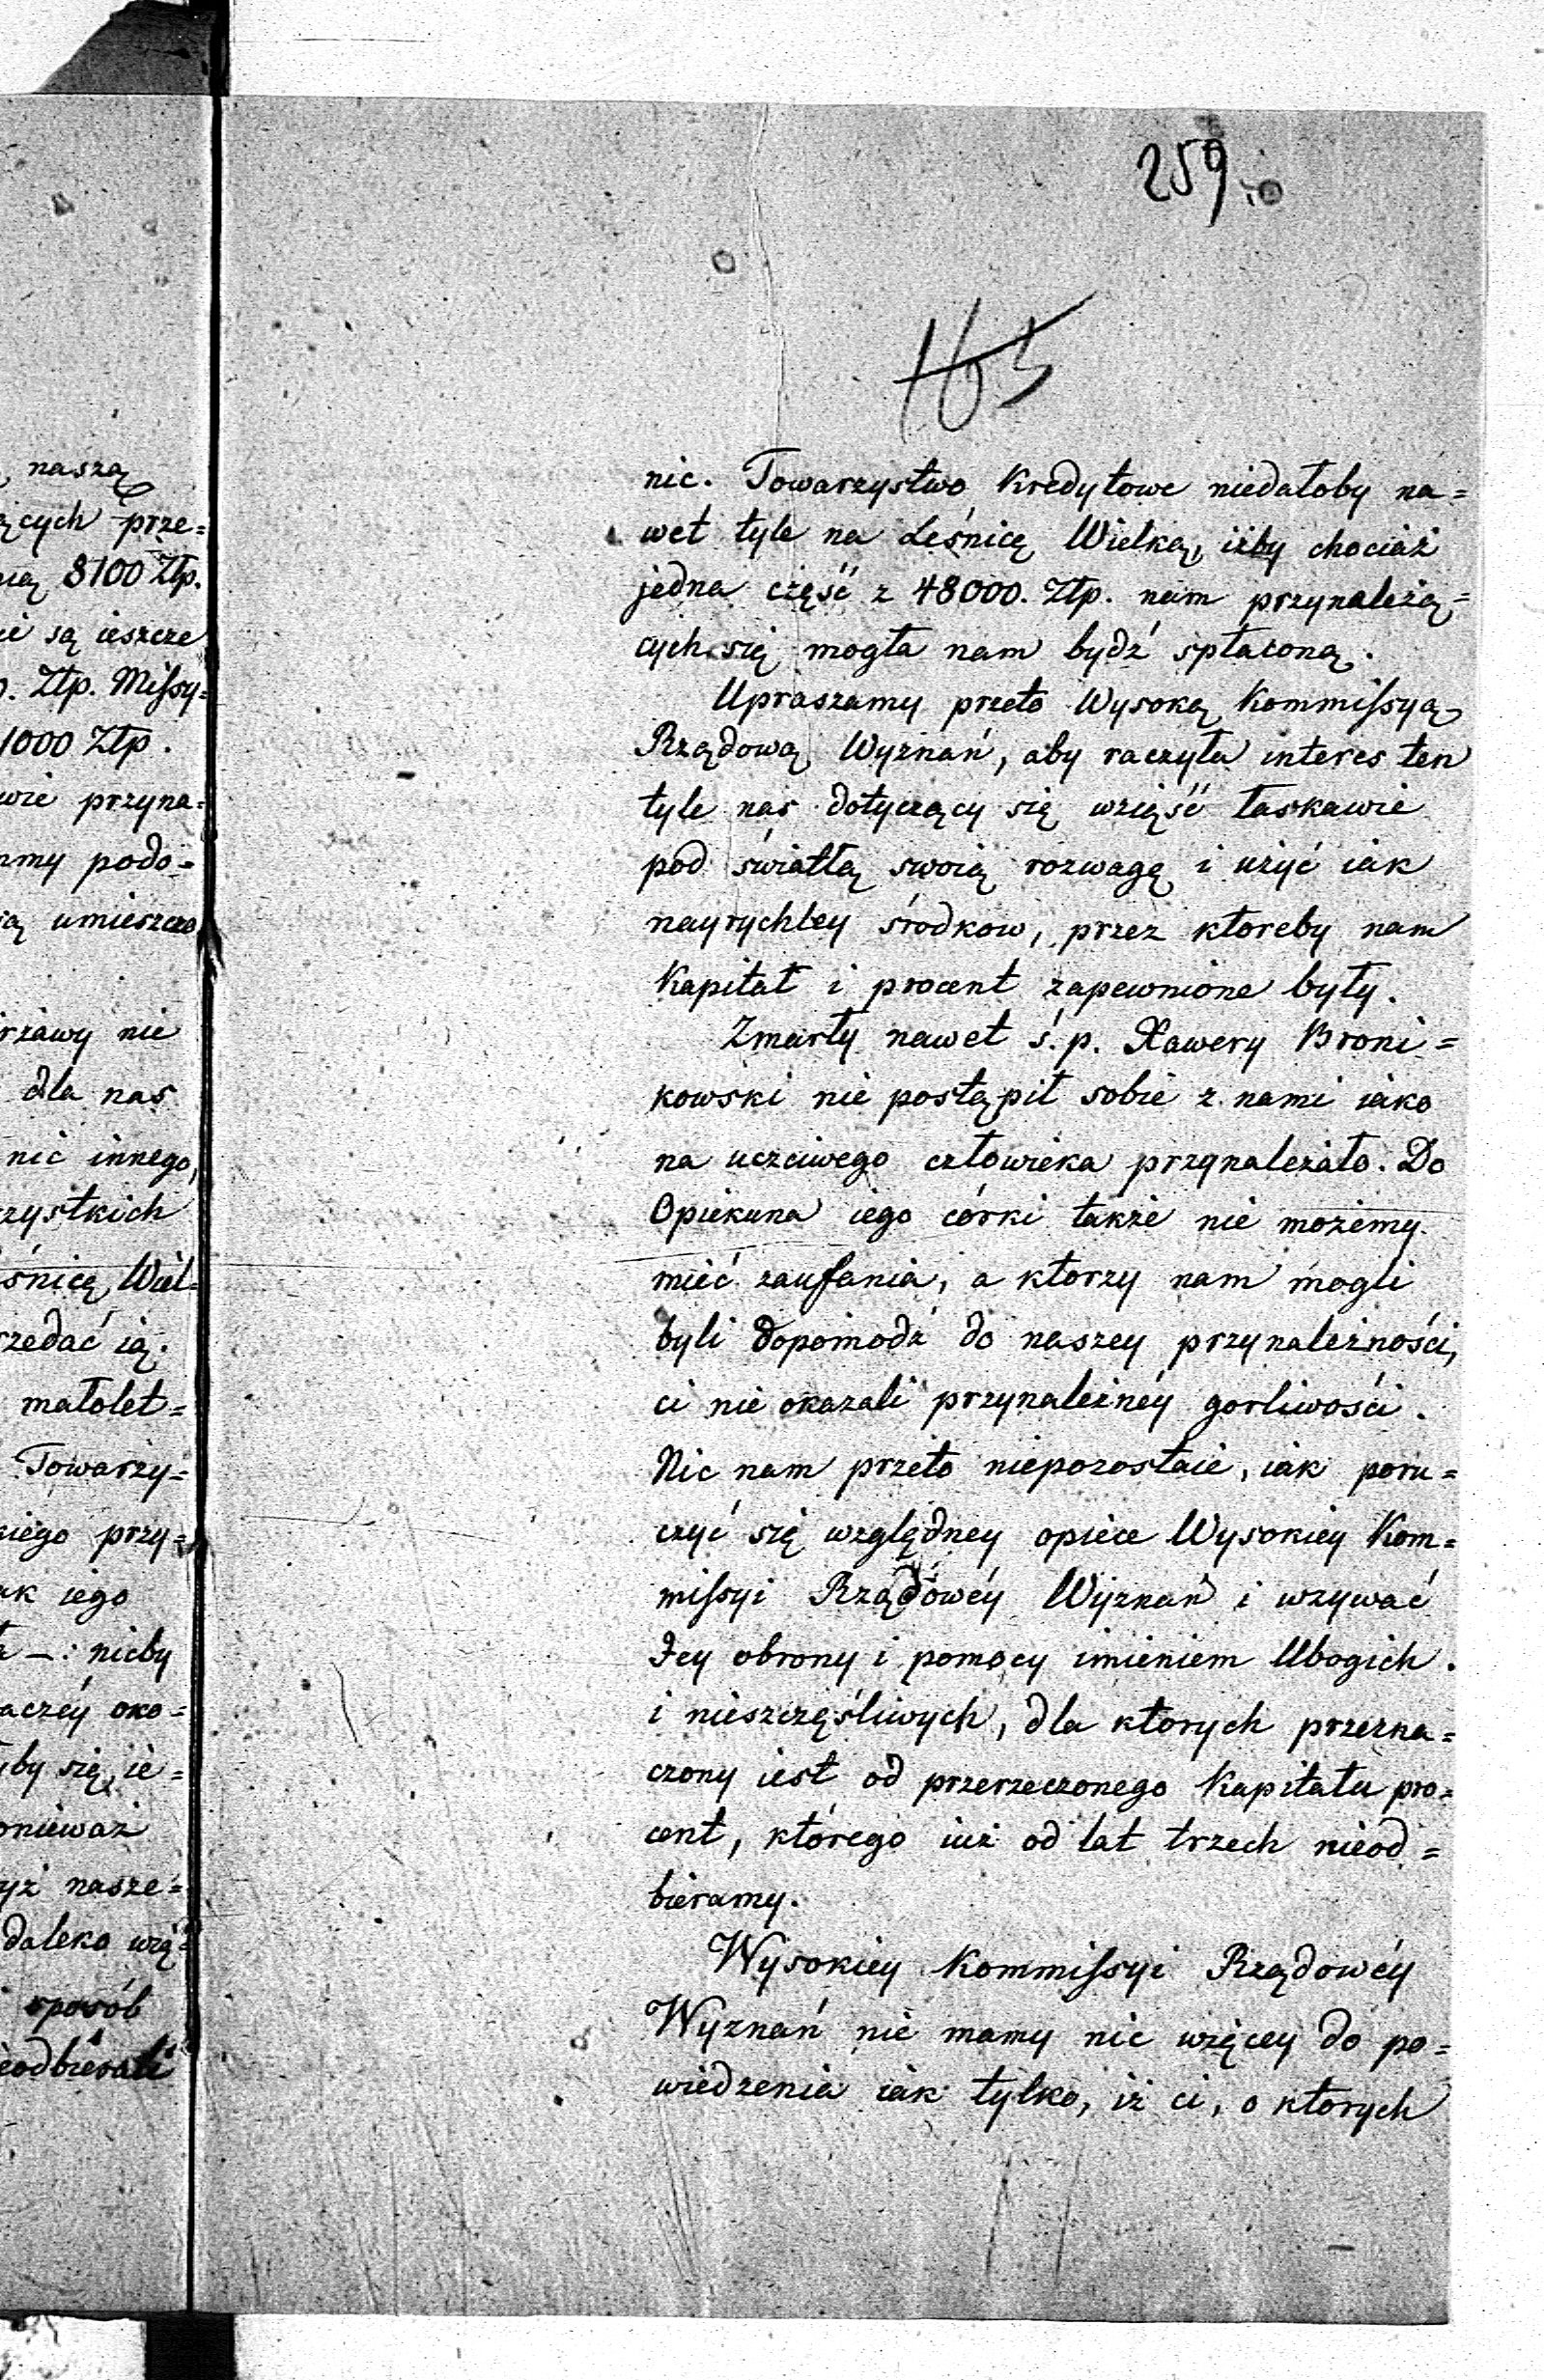 259.
163
nic. Towarzystwo Kredytowe niedałoby na=
wet tyle na Leśnicę Wielką, iżby chociaż
jedna część z 48000. Złp. nam przynależą=
cych się mogła nam bydź spłaconą.
Upraszamy przeto Wysoką Kommissyą
Rządową Wyznań, aby raczyła interes ten
tyle nas dotyczący się wziąść łaskawie
pod światłą swoią rozwagę i użyć iak
nayrychley środkow, przez ktoreby nam
Kapitał i procent zapewnione były.
Zmarły nawet ś. p. Xawery Broni=
kowski nie postąpił sobie z nami iako
na uczciwego człowieka przynależało. Do
Opiekuna iego córki także nie możemy
mieć zaufania, a ktorzy nam mogli
byli dopomodz do naszey przynależności,
ci nie okazali przynależnéy gorliwości.
Nic nam przeto niepozostaie, iak poru=
czyć się względney opiece Wysokiey Kom=
missyi Rządowéy Wyznań i wzywać
Jey obrony i pomocy imieniem Ubogich
i nieszczęśliwych, dla ktorych przezna=
czony iest od przerzeczonego Kapitału pro=
cent, którego iuż od lat trzech nieod=
bieramy.
Wysokiey Kommissyi Rządowéy
Wyznań nie mamy nic więcey do po=
wiedzenia iak tylko, iż ci, o ktorych
naszą
ących prze=
8100 Złp.
są ieszcze
Złp. Missy=
1000 Złp.
przyna=
podo=
umieszczo
nie
dla nas
nic innego,
zystkich
śnicę Wiel=
rzedać ią.
małolet=
Towarzy=
kiego przy=
iego
nicby
aczéy oko=
by się ie=
onieważ
yż nasze=
daleko wię=
sposób
eodbierali